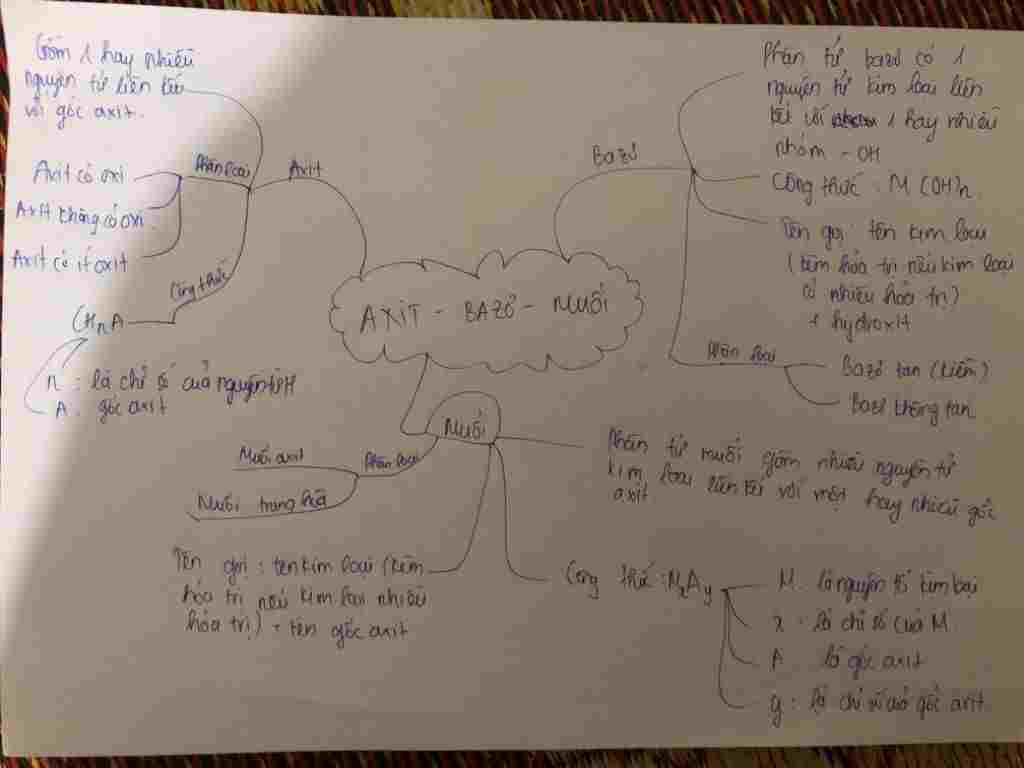 Gồm 1 hay nhiều
nguyên tử liên kết
với gốc axit.
Axit
Phân loại
Axit có oxi
Axit không có oxi
Axit có ít oxit
Công thức
HnA
n : là chỉ số của nguyên tử H
A : gốc axit
AXIT - BAZƠ - MUỐI
Bazơ
Phân tử bazơ có 1
nguyên tử kim loại liên
kết với 1 hay nhiều
nhóm - OH
Công thức : M(OH)n
Tên gọi : tên kim loại
(kèm hóa trị nếu kim loại
có nhiều hóa trị)
+ hydroxit
Phân loại
Bazơ tan (kiềm)
Bazơ không tan
Muối
Phân loại
Muối axit
Muối trung hòa
Phân tử muối gồm nhiều nguyên tử
kim loại liên kết với một hay nhiều gốc
axit
Tên gọi : tên kim loại (kèm
hóa trị nếu kim loại nhiều
hóa trị) + tên gốc axit
Công thức : MxAy
M là nguyên tử kim loại
x : là chỉ số của M
A là gốc axit
y : là chỉ số của gốc axit.